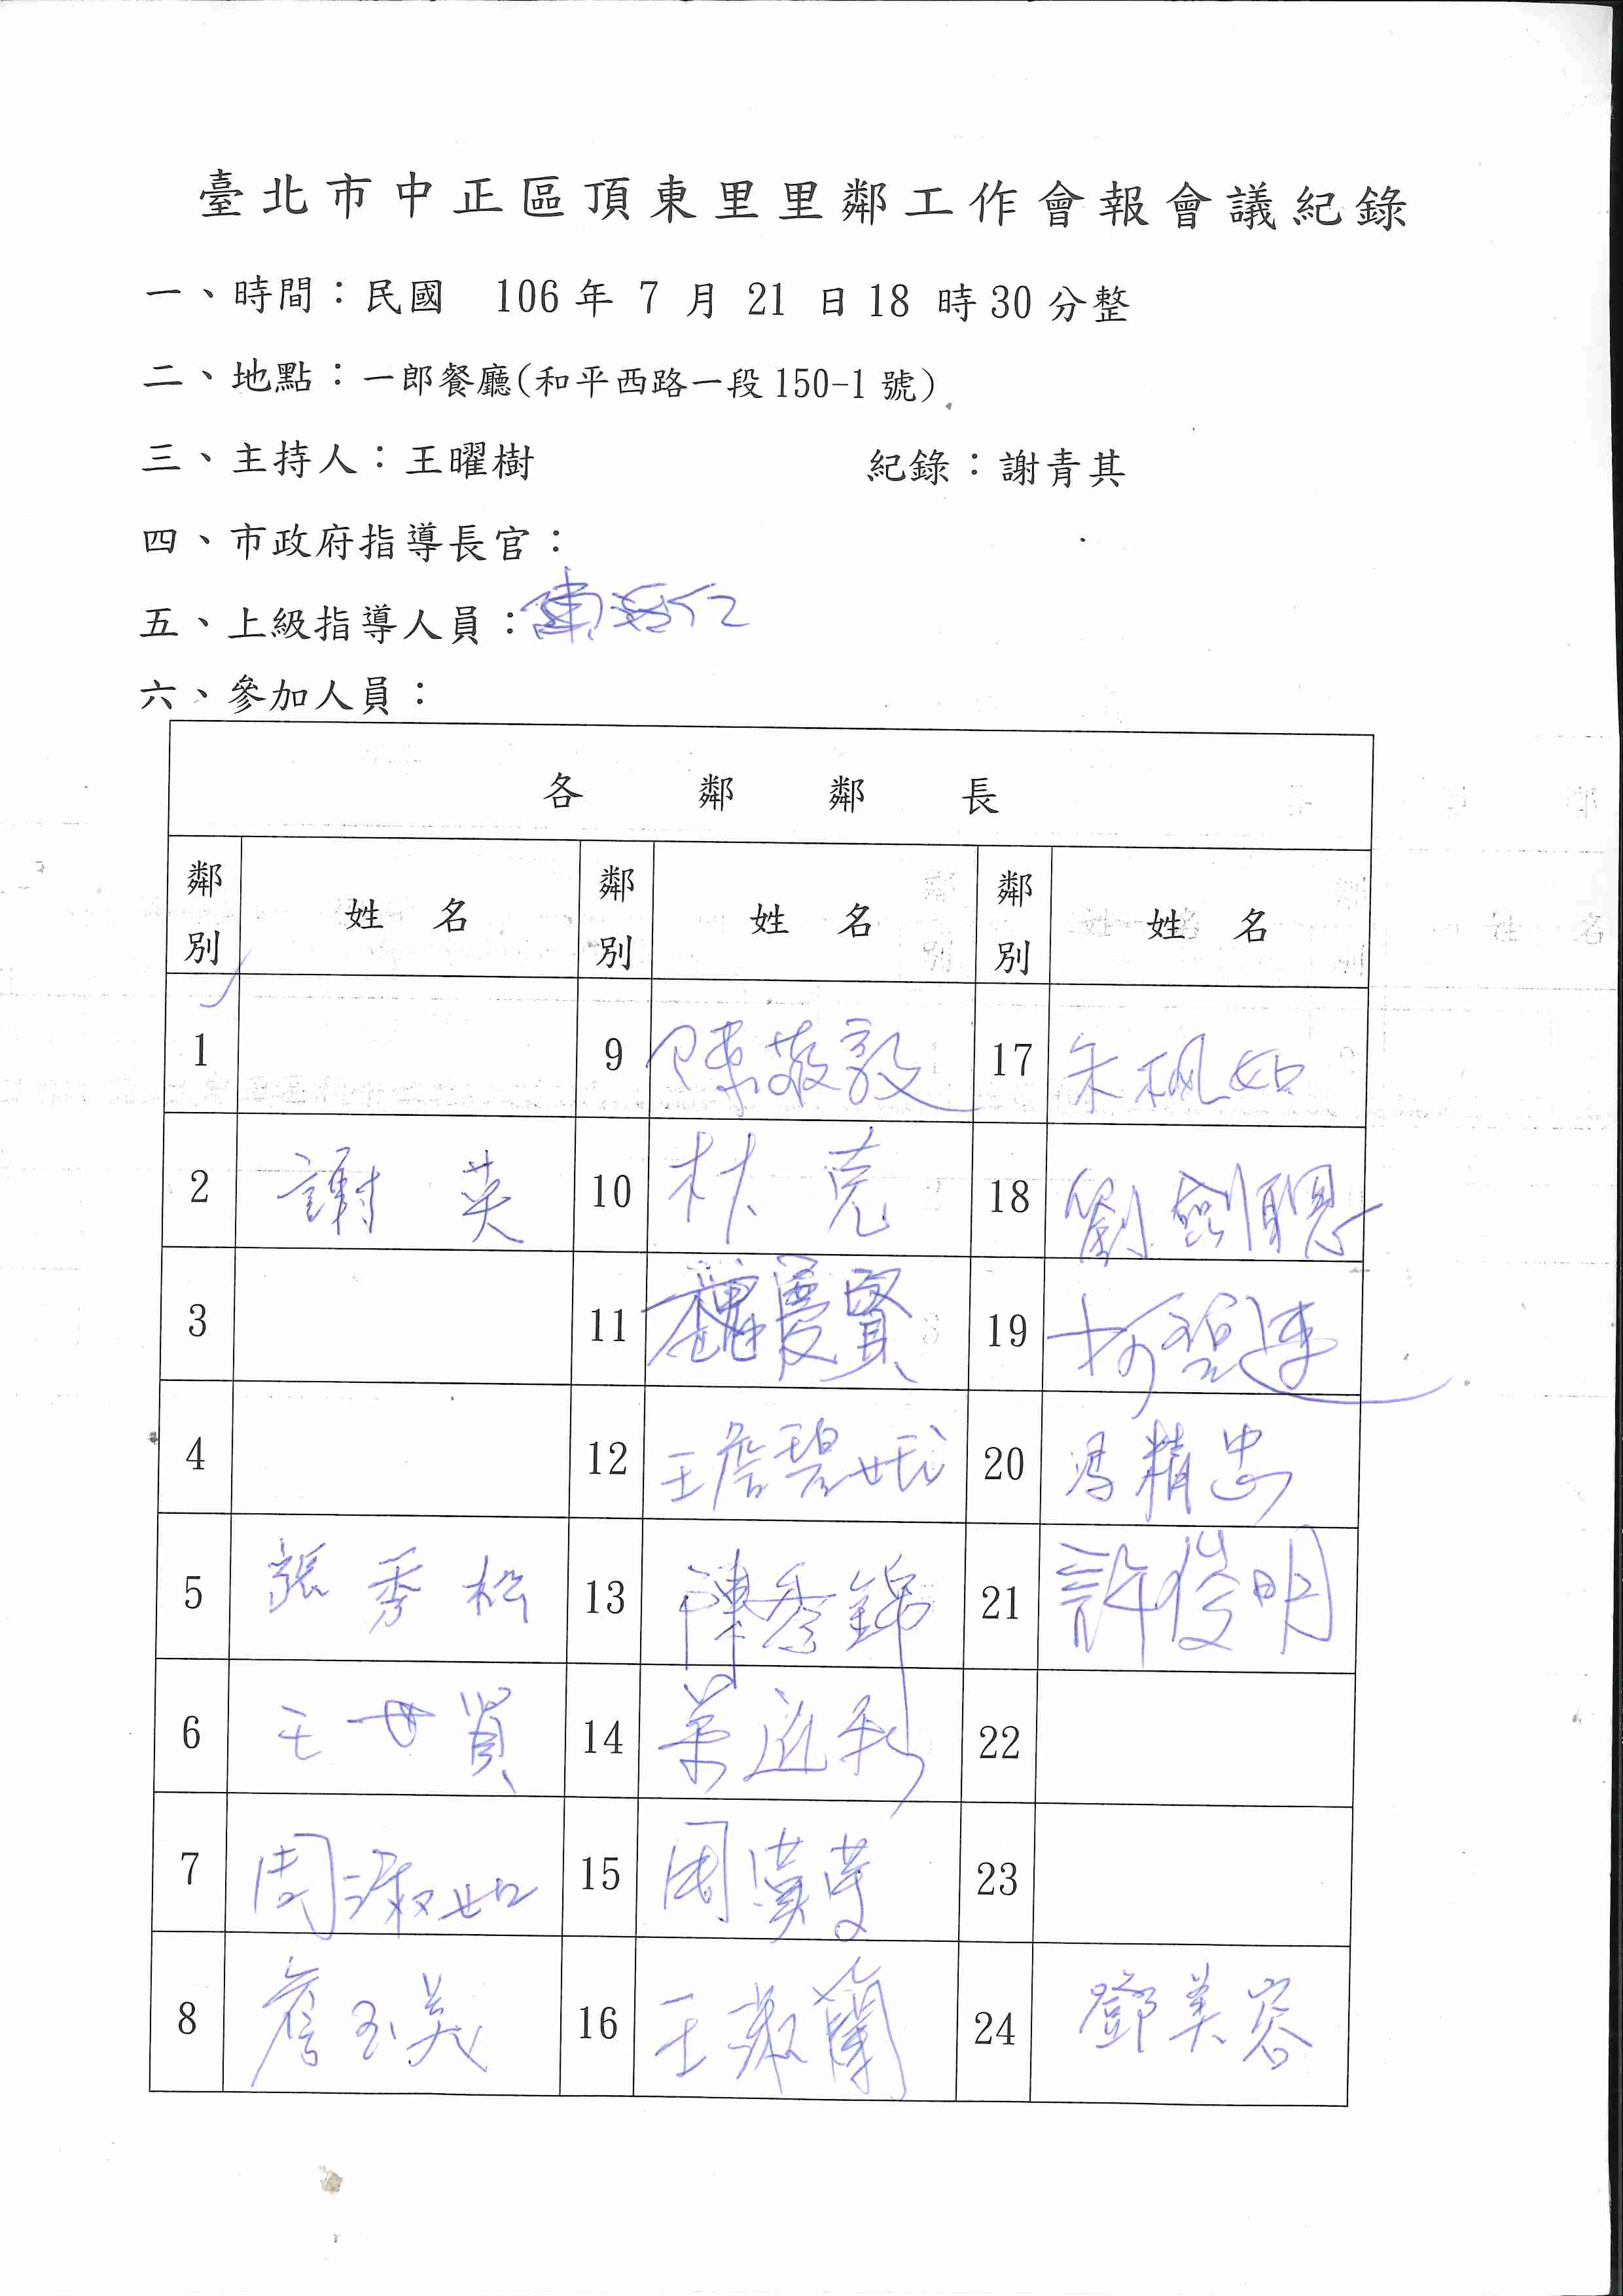 臺北市中正區頂東里里鄰工作會報會議紀錄
一、時間：民國 106 年 7 月 21 日 18 時 30 分整
二、地點：一郎餐廳(和平西路一段 150-1 號)
三、主持人：王曜樹 紀錄：謝青其
四、市政府指導長官：
五、上級指導人員：
六、參加人員：
各 鄰 鄰 長
鄰別 姓 名 鄰別 姓 名 鄰別 姓 名
1 9 陳敬毅 17 朱楓如
2 謝 英 10 林 克 18 劉劍聰
3 11 魏慶賢 19 柯碧蓮
4 12 王詹碧娥 20 馮精忠
5 張秀松 13 陳秀錦 21 許俊明
6 王世賢 14 22
7 周淑如 15 周漢 23
8 詹玉美 16 王淑蘭 24 鄧美容